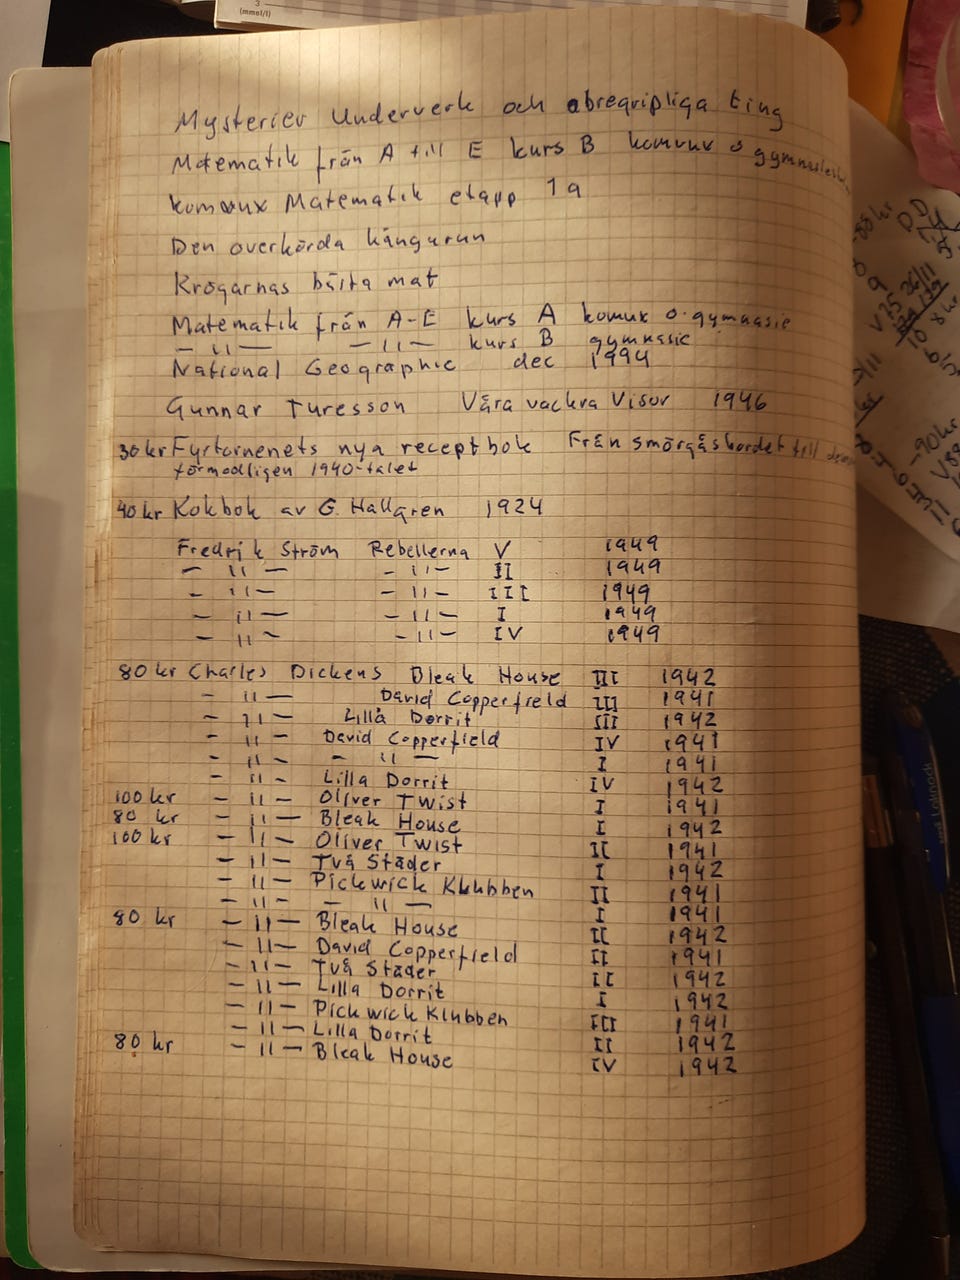 3
(mmol/l)
Mysterier Underverk och obegripliga ting
Matematik från A till E kurs B komvux o
komvux Matematik etapp 1a
Den överkörda kängurun
Krögarnas bästa mat
Matematik från A-E kurs A komux o gymnasie
— " — — " — kurs B gymnasie
National Geographic dec 1994
Gunnar Turesson Våra vackra Visor 1946
30 kr Fyrtornenets nya receptbok Från smörgåsbordet till
förmodligen 1940-talet
40 kr Kokbok av G. Hallgren 1924
Fredrik Ström Rebellerna V 1949
— " — — " — II 1949
— " — — " — III 1949
— " — — " — I 1949
— " — — " — IV 1949
80 kr Charles Dickens Bleak House III 1942
— " — David Copperfield III 1941
— " — Lilla Dorrit III 1942
— " — David Copperfield IV 1941
— " — — " — I 1941
— " — Lilla Dorrit IV 1942
100 kr — " — Oliver Twist I 1941
80 kr — " — Bleak House I 1942
100 kr — " — Oliver Twist II 1941
— " — Två Städer I 1942
— " — Pickwick Klubben II 1941
— " — — " — I 1941
80 kr — " — Bleak House II 1942
— " — David Copperfield II 1941
— " — Två Städer II 1942
— " — Lilla Dorrit I 1942
— " — Pickwick Klubben III 1941
— " — Lilla Dorrit II 1942
80 kr — " — Bleak House IV 1942